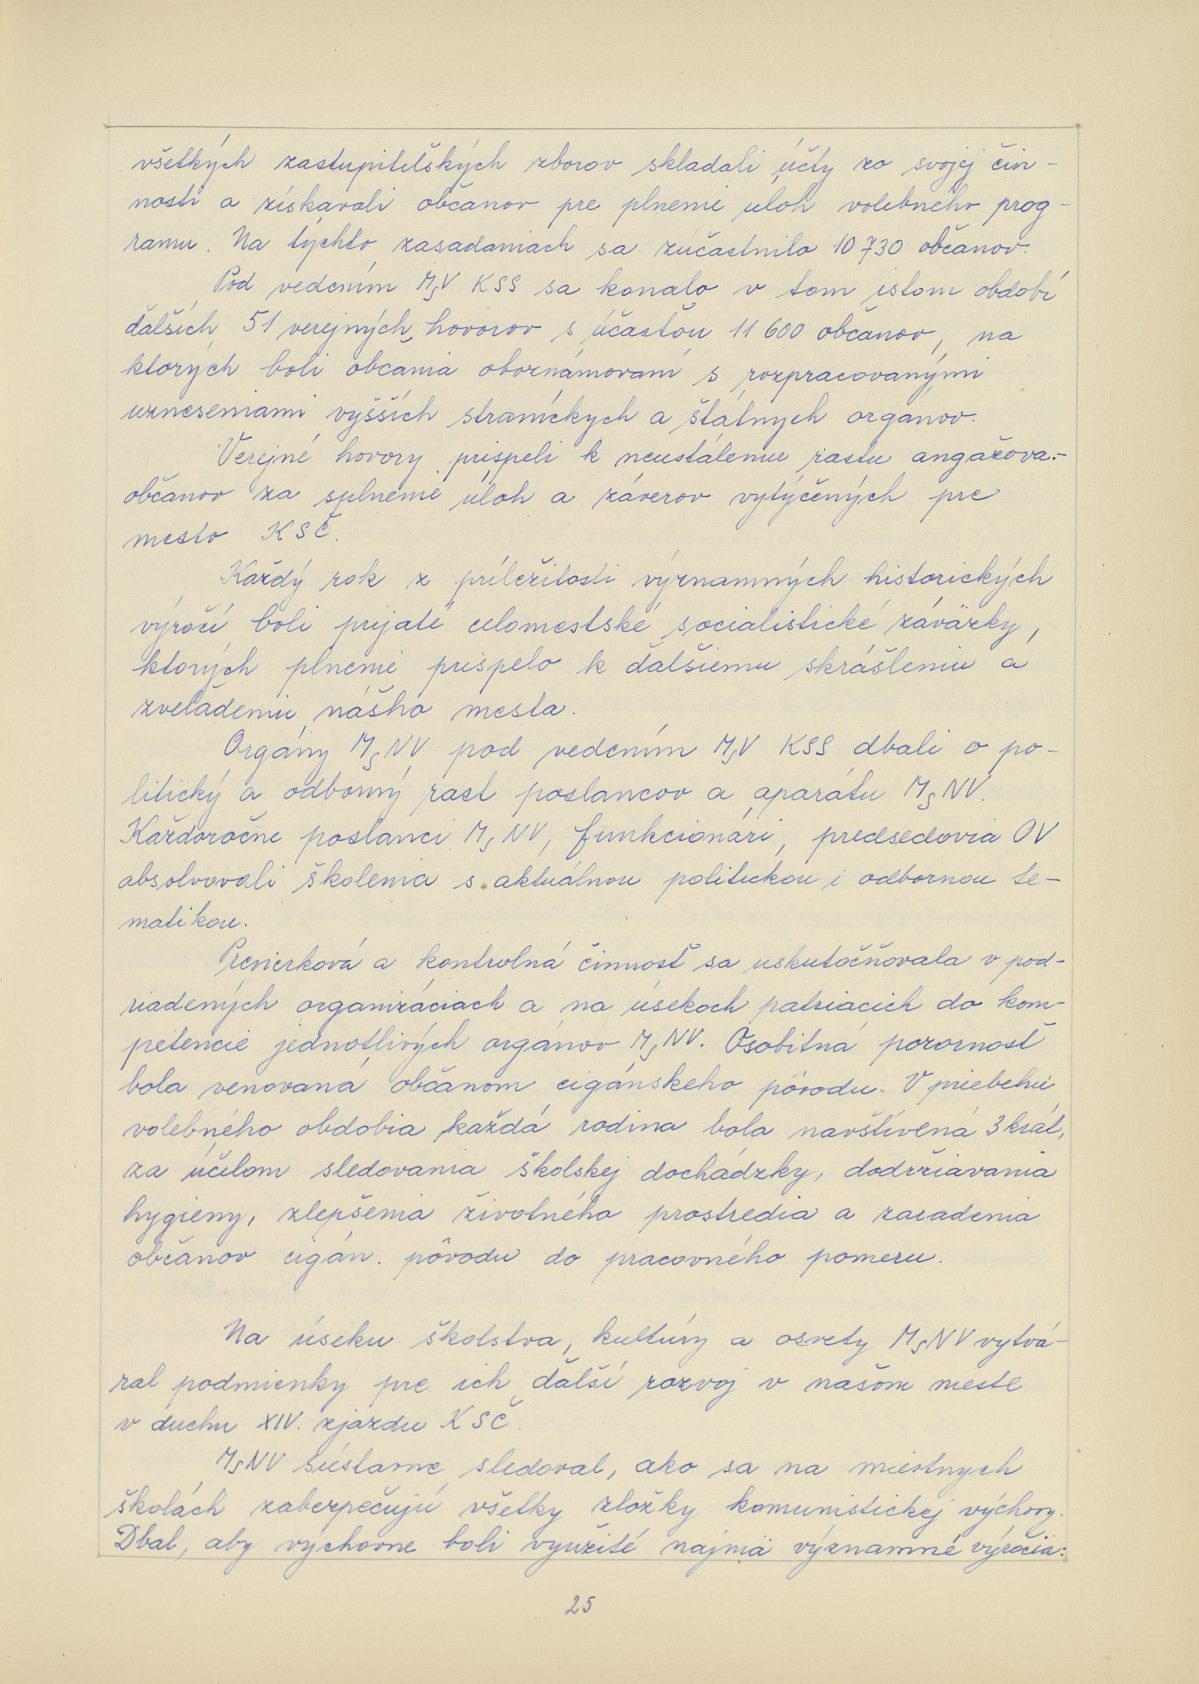 všetkých zastupiteľských zborov skladali účty zo svojej čin-
nosti a získavali občanov pre plnenie úloh volebného prog-
ramu. Na týchto zasadaniach sa zúčastnilo 10 730 občanov.
Pod vedením MsV KSS sa konalo v tom istom období
ďalších 51 verejných hovorov s účasťou 11 600 občanov, na
ktorých boli občania oboznámovaní s rozpracovanými
uzneseniami vyšších straníckych a štátnych orgánov.
Verejné hovory prispeli k neustálemu rastu angažova.-
občanov za splnenie úloh a záverov vytýčených pre
mesto KSČ.
Každý rok z príležitosti významných historických
výročí boli prijaté celomestské socialistické záväzky,
ktorých plnenie prispelo k ďalšiemu skrášleniu a
zveľadeniu nášho mesta.
Orgány MsNV pod vedením MsV KSS dbali o po-
litický a odborný rast poslancov a aparátu MsNV.
Každoročne poslanci MsNV, funkcionári, predsedovia OV
absolvovali školenia s aktuálnou politickou i odbornou te-
matikou.
Previerková a kontrolná činnosť sa uskutočňovala v pod-
riadených organizáciach a na úsekoch patriacich do kom-
petencie jednotlivých orgánov MsNV. Osobitná pozornosť
bola venovaná občanom cigánskeho pôvodu. V priebehu
volebného obdobia každá rodina bola navštívená 3 krát,
za účelom sledovania školskej dochádzky, dodržiavania
hygieny, zlepšenia životného prostredia a zaradenia
občanov cigán. pôvodu do pracovného pomeru.
Na úseku školstva, kultúry a osvety MsNV vytvá-
ral podmienky pre ich ďalší rozvoj v našom meste
v duchu XIV. zjazdu KSČ.
MsNV sústavne sledoval, ako sa na miestnych
školách zabezpečujú všetky zložky komunistickej výchovy.
Dbal, aby výchovne boli využité najmä významné výročia:
25